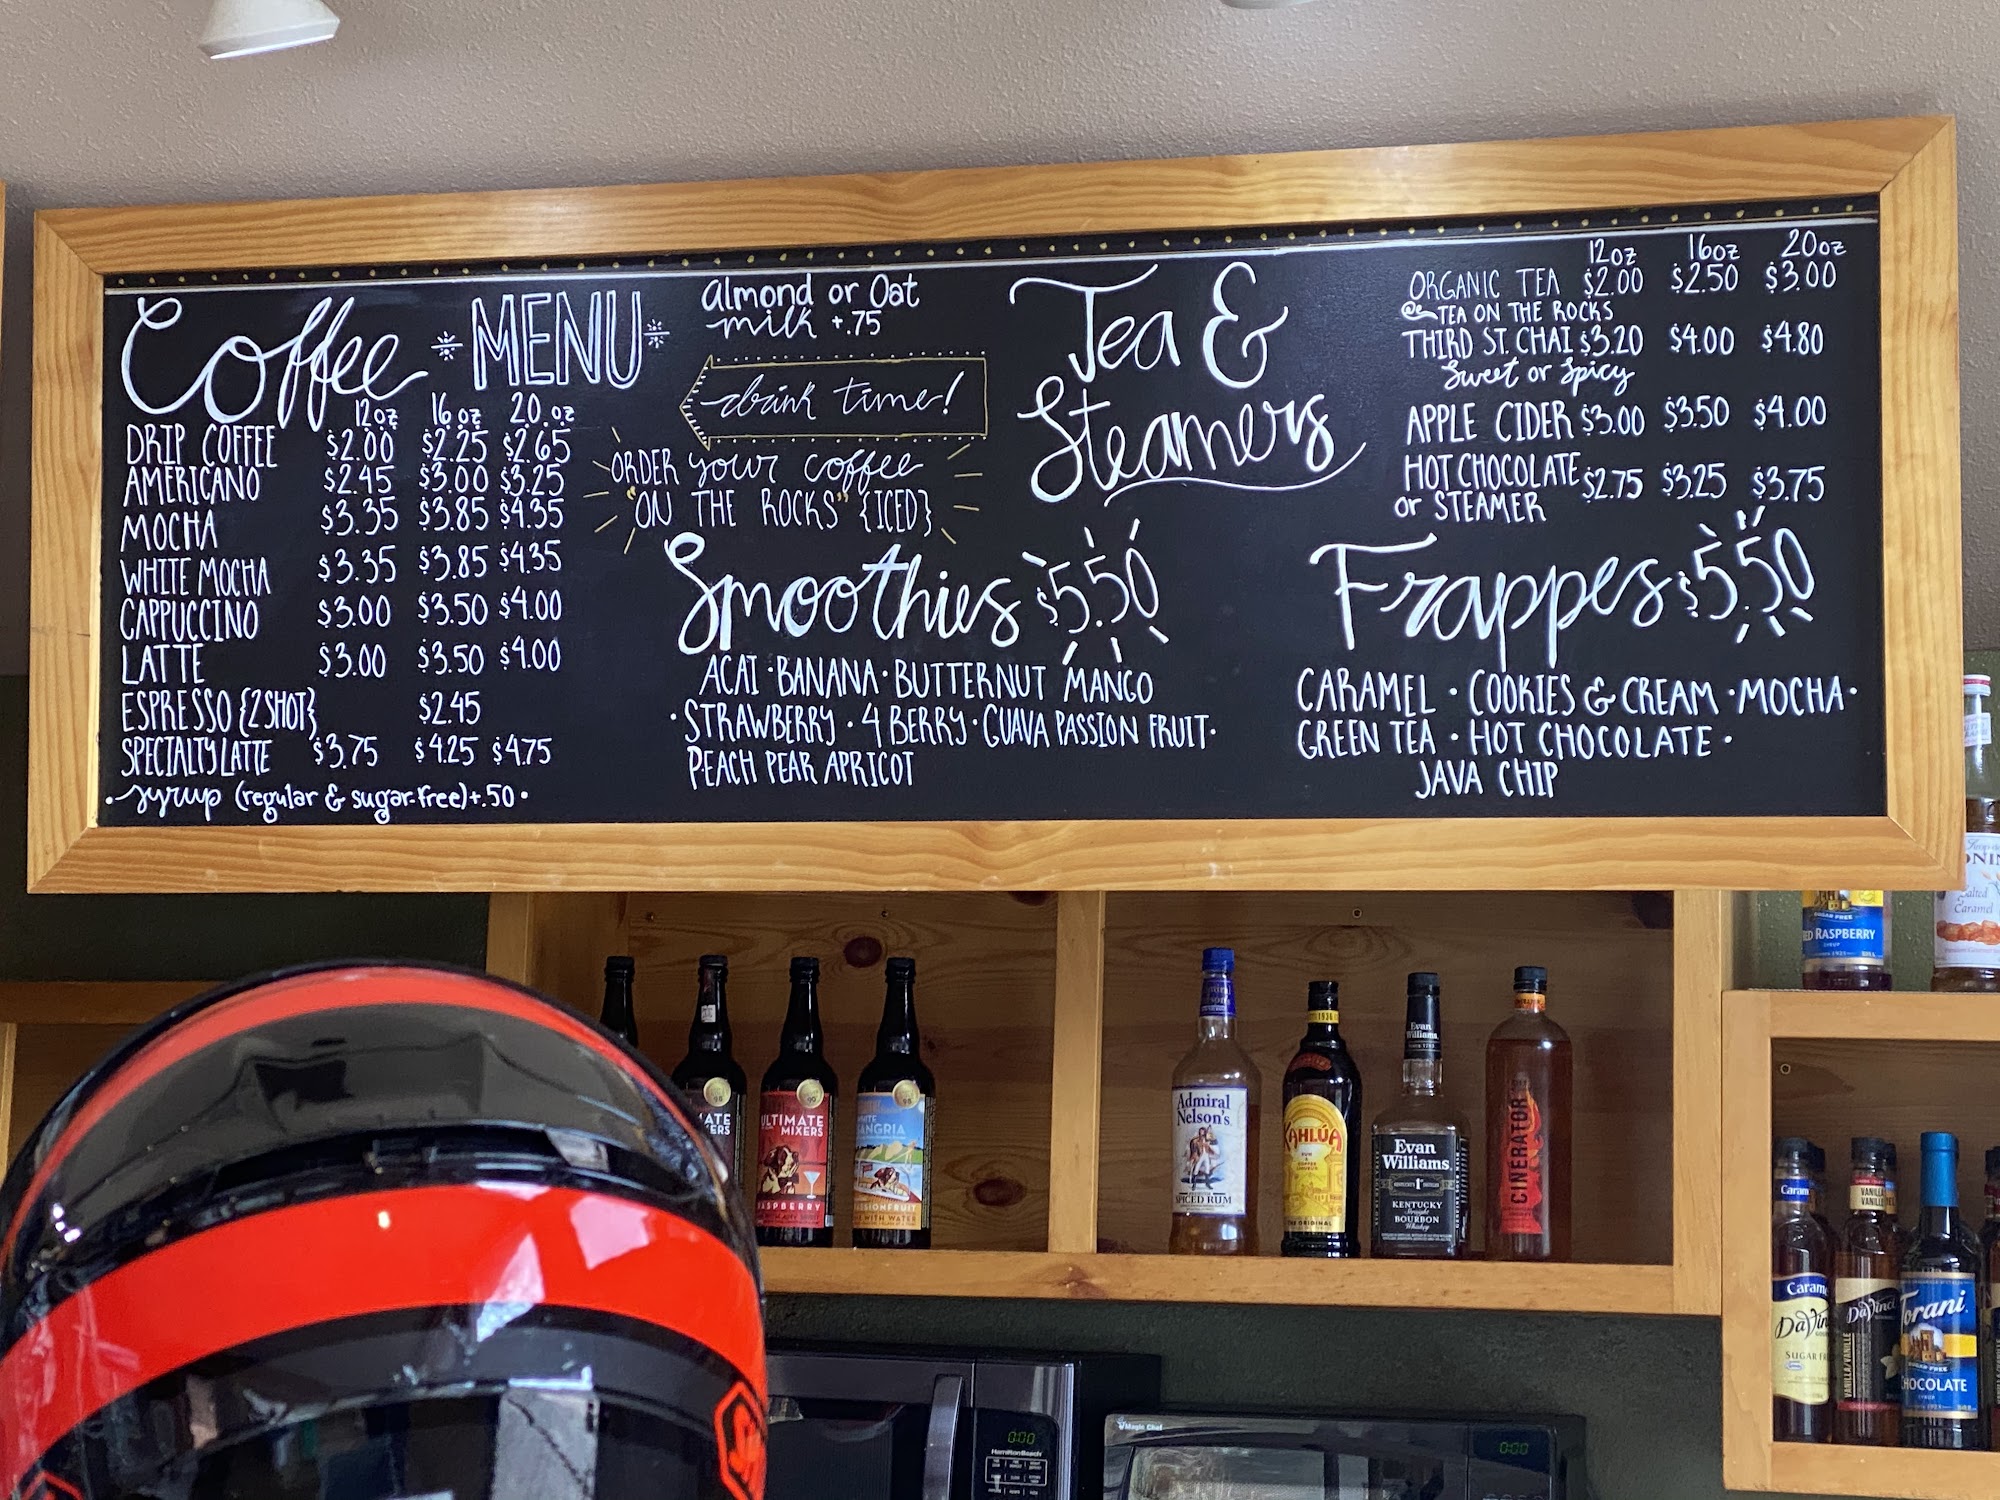 Coffee MENU
12oz 16 oz 20 oz
DRIP COFFEE $2.00 $2.25 $2.65
AMERICANO $2.45 $3.00 $3.25
MOCHA $3.35 $3.85 $4.35
WHITE MOCHA $3.35 $3.85 $4.35
CAPPUCCINO $3.00 $3.50 $4.00
LATTE $3.00 $3.50 $4.00
ESPRESSO {2SHOT} $2.45
SPECIALTY LATTE $3.75 $4.25 $4.75
• syrup (regular & sugar-free) +.50 •
almond or Oat
milk +.75
drink time!
ORDER your coffee
"ON THE ROCKS" {ICED}
Smoothies $5.50
ACAI • BANANA • BUTTERNUT MANGO
• STRAWBERRY • 4 BERRY • GUAVA PASSION FRUIT •
PEACH PEAR APRICOT
Tea &
Steamers
12oz 16oz 20oz
ORGANIC TEA $2.00 $2.50 $3.00
TEA ON THE ROCKS
THIRD ST. CHAI $3.20 $4.00 $4.80
Sweet or Spicy
APPLE CIDER $3.00 $3.50 $4.00
HOT CHOCOLATE
or STEAMER $2.75 $3.25 $3.75
Frappes $5.50
CARAMEL • COOKIES & CREAM • MOCHA •
GREEN TEA • HOT CHOCOLATE •
JAVA CHIP
Salted
Caramel
SUGAR FREE
RASPBERRY
SYRUP
ULTIMATE
MIXERS
RASPBERRY
SANGRIA
PASSIONFRUIT
WITH WATER
Admiral
Nelson's
SPICED RUM
1936
KAHLÚA
RUM
&
COFFEE
LIQUEUR
THE ORIGINAL
Evan
Williams
Evan
Williams
KENTUCKY
Straight
BOURBON
Whiskey
CINERATOR
Caram
Caram
DaVin
SUGAR FR
VANILLA
DaVinci
VANILLA/VANILLE
Torani
SUGAR FREE
CHOCOLATE
SYRUP
0:00
HamiltonBeach
Magic Chef
0:00